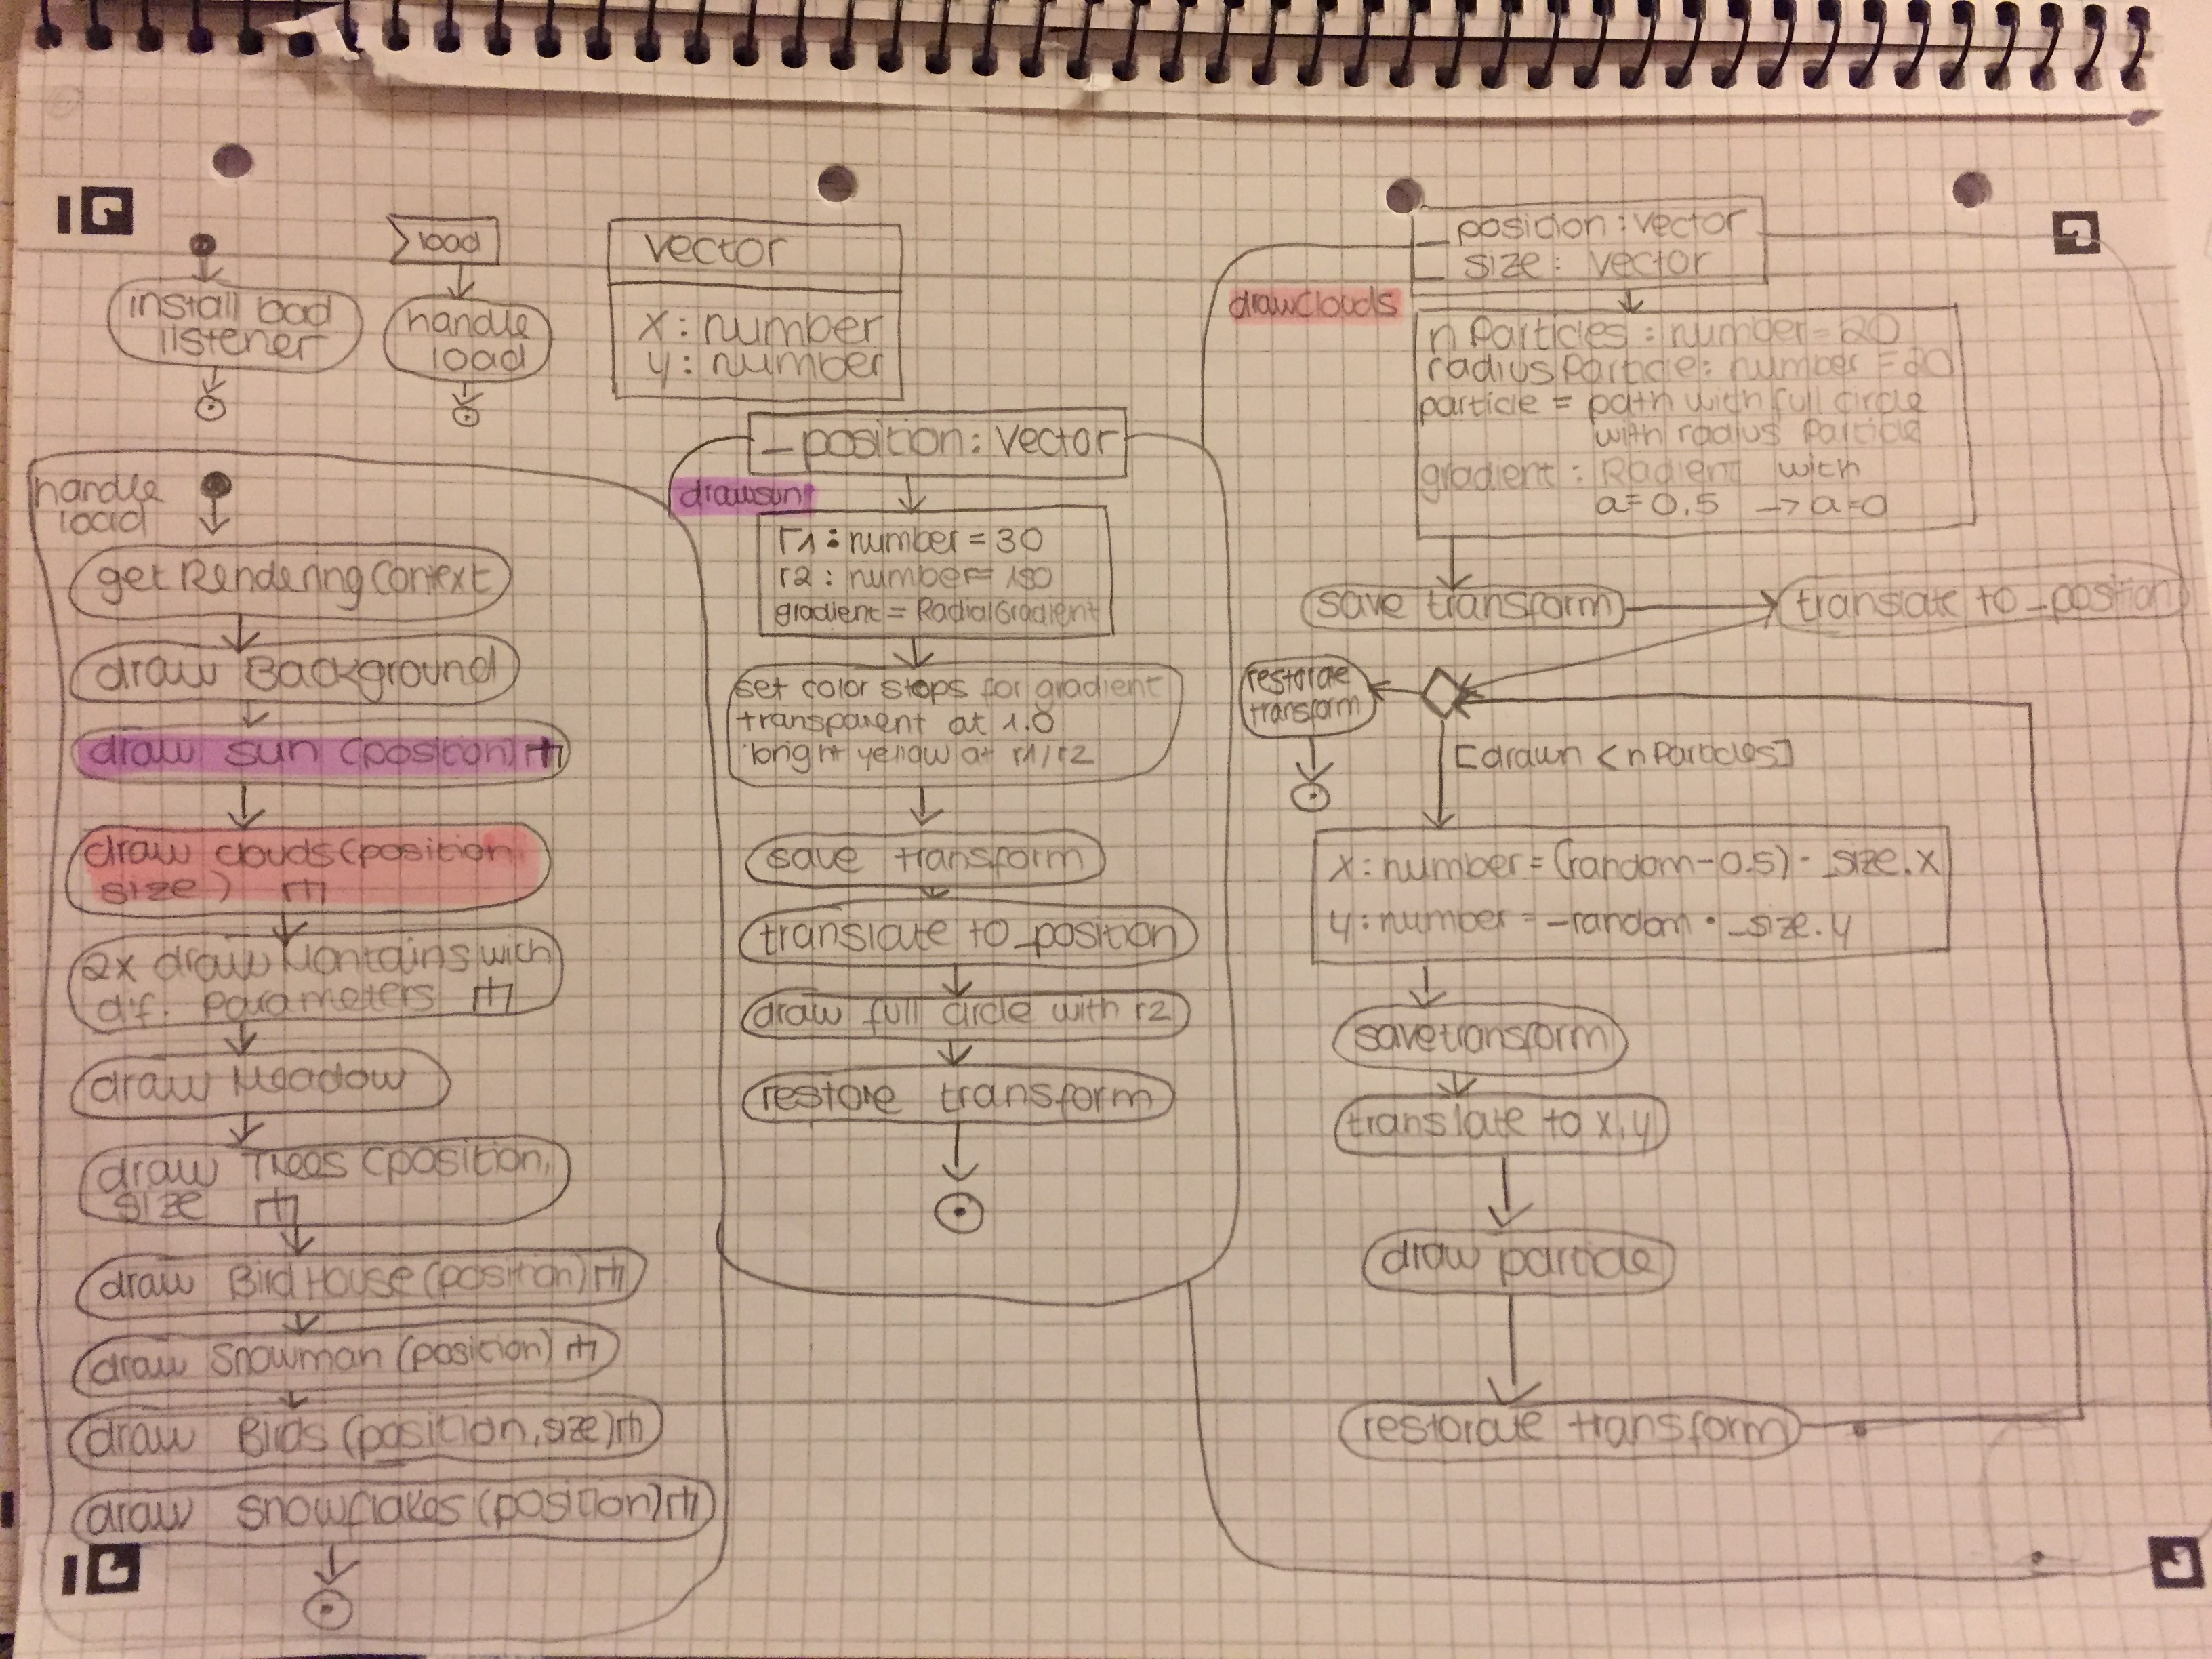 install load
listener
load
handle
load
Vector
x: number
y: number
handle
load
get Rendering Context
draw Background
draw sun (position)
draw clouds (position
size)
2x draw Montains with
dif. parameters
draw Meadow
draw Trees (position,
size
draw Bird House (position)
draw Snowman (position)
draw Birds (position, size)
draw snowflakes (position)
drawsun
_position: Vector
r1: number = 30
r2: number = 150
gradient = RadialGradient
set color stops for gradient
transparent at 1.0
bright yellow at r1/r2
save transform
translate to _position
draw full circle with r2
restore transform
drawClouds
_position: vector
_size: vector
n Particles: number = 20
radiusParticle: number = 20
particle = path with ful circle
with radius particle
gradient: Radient with
a = 0.5 -> a=0
save transform
translate to _position
restorae
transform
[drawn < n Particles]
x: number = (random - 0.5) · _size.x
y: number = - random · _size.y
save transform
translate to x,y
draw particle
restorate transform